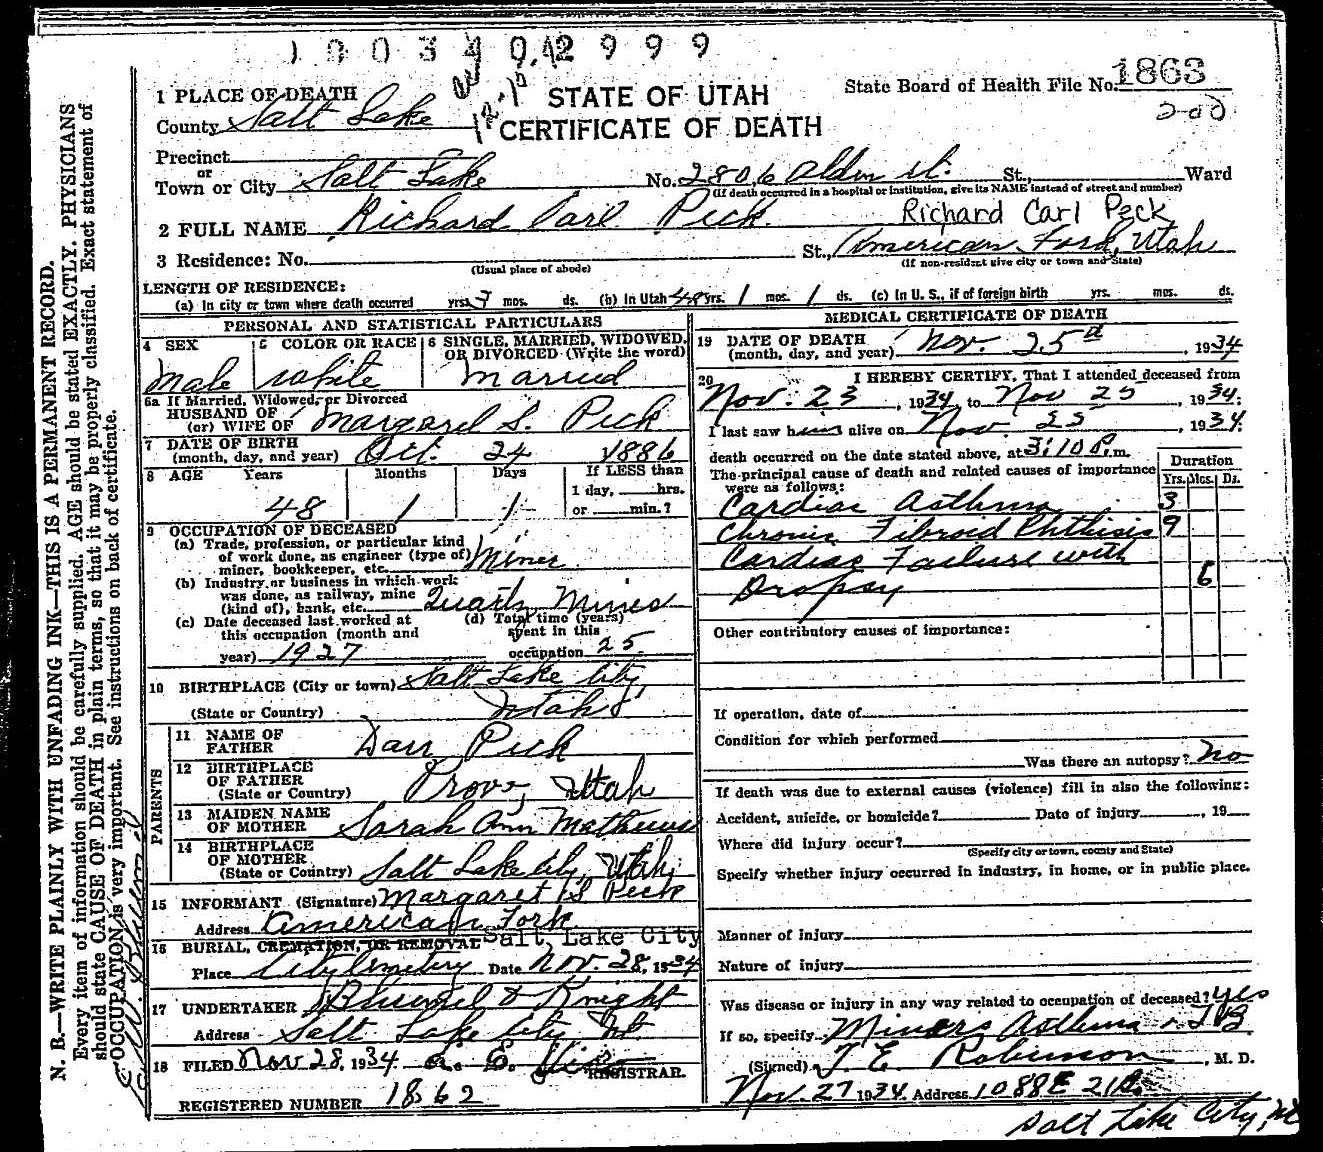 State Board of Health File No. 1863
200
STATE OF UTAH
CERTIFICATE OF DEATH
1 PLACE OF DEATH
County Salt Lake
Precinct
or
Town or City Salt Lake No. 2806 Alden St. St., Ward
(If death occurred in a hospital or institution, give its NAME instead of street and number)
2 FULL NAME Richard Carl Peck. Richard Carl Peck
3 Residence: No. St., American Fork, Utah
(Usual place of abode) (If non-resident give city or town and State)
LENGTH OF RESIDENCE:
(a) In city or town where death occurred yrs. 3 mos. ds. (b) In Utah 48 yrs. 1 mos. 1 ds. (c) In U. S., if of foreign birth yrs. mos. ds.
PERSONAL AND STATISTICAL PARTICULARS
4 SEX 5 COLOR OR RACE 6 SINGLE, MARRIED, WIDOWED,
OR DIVORCED (Write the word)
Male white married
6a If Married, Widowed, or Divorced
HUSBAND OF
(or) WIFE OF Margaret S. Peck
7 DATE OF BIRTH
(month, day, and year) Oct. 24 1886
8 AGE Years Months Days If LESS than
1 day, hrs.
or min.?
48 1 1
9 OCCUPATION OF DECEASED
(a) Trade, profession, or particular kind
of work done, as engineer (type of)
miner, bookkeeper, etc. Miner
(b) Industry or business in which work
was done, as railway, mine
(kind of), bank, etc. Quartz Mines
(c) Date deceased last worked at
this occupation (month and
year) 1927
(d) Total time (years)
spent in this
occupation 25
10 BIRTHPLACE (City or town) Salt Lake City,
(State or Country) Utah
PARENTS
11 NAME OF
FATHER Dan Peck
12 BIRTHPLACE
OF FATHER
(State or Country) Provo, Utah
13 MAIDEN NAME
OF MOTHER Sarah Ann Mathews
14 BIRTHPLACE
OF MOTHER
(State or Country) Salt Lake City, Utah,
15 INFORMANT (Signature) Margaret S Peck
Address American Fork
16 BURIAL, CREMATION, OR REMOVAL Salt Lake City
Place City Cemetery Date Nov. 28, 1934
17 UNDERTAKER & Knight
Address Salt Lake City Ut.
18 FILED Nov 28, 1934 a. E. REGISTRAR.
REGISTERED NUMBER 1862
MEDICAL CERTIFICATE OF DEATH
19 DATE OF DEATH
(month, day, and year) Nov. 25th, 1934
20 I HEREBY CERTIFY, That I attended deceased from
Nov. 23, 1934, to Nov 25, 1934;
I last saw him alive on Nov. 25, 1934.
death occurred on the date stated above, at 3:10 P.m.
The principal cause of death and related causes of importance
were as follows:
Duration
Yrs. Mos. Ds.
Cardiac Asthma 3
Chronic Fibroid Phthisis 9
Cardiac Failure with
Dropsy 6
Other contributory causes of importance:
If operation, date of
Condition for which performed
Was there an autopsy? no
If death was due to external causes (violence) fill in also the following:
Accident, suicide, or homicide? Date of injury , 19
Where did injury occur?
(Specify city or town, county and State)
Specify whether injury occurred in industry, in home, or in public place.
Manner of injury
Nature of injury
Was disease or injury in any way related to occupation of deceased? yes
If so, specify Miners Asthma TB
(Signed) T. E. Robinson, M. D.
Nov. 27 1934. Address 1088 E 21 So.
Salt Lake City, Ut
N. B.—WRITE PLAINLY WITH UNFADING INK—THIS IS A PERMANENT RECORD.
Every item of information should be carefully supplied. AGE should be stated EXACTLY. PHYSICIANS
should state CAUSE OF DEATH in plain terms, so that it may be properly classified. Exact statement of
OCCUPATION is very important. See instructions on back of certificate.